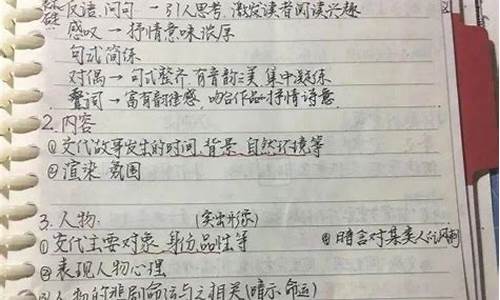 反语,问句 → 引人思考,激发读者阅读兴趣
感叹 → 抒情意味浓厚
句式简练
对偶 → 句式整齐,有音韵美,集中凝练
叠词 → 富有韵律感,吻合作品的抒情诗意
2.内容
①交代故事发生的时间,背景,自然环境等
②渲染 氛围
3.人物: (突出形象)
①交代主要对象,身份品性等 ④暗含对某类人的讽刺
②表现人物心理
③人物的悲剧命运与之相关(暗示命运)